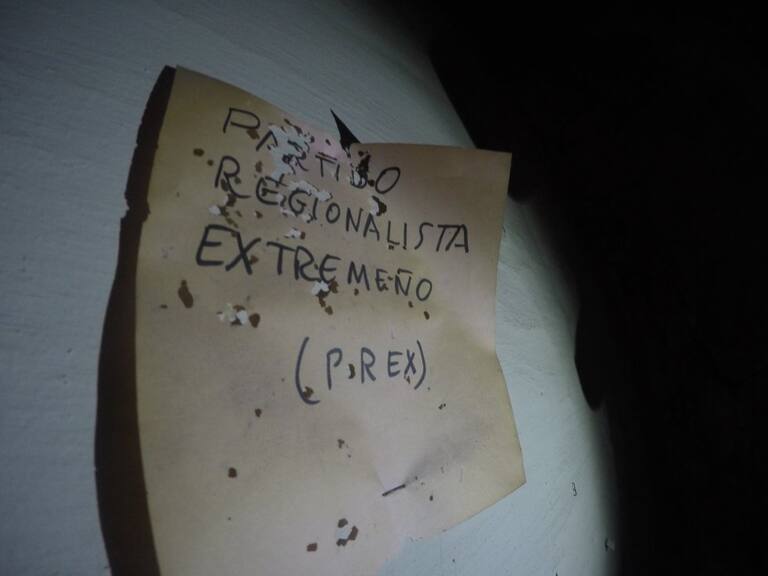 PARTIDO
REGIONALISTA
EXTREMEÑO
(P.REX)